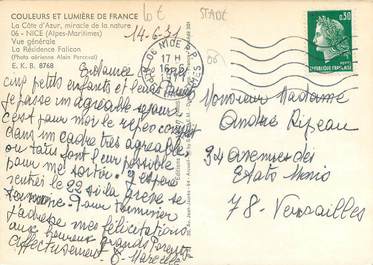 COULEURS ET LUMIÈRE DE FRANCE
La Côte d'Azur, miracle de la nature
06 - NICE (Alpes-Maritimes)
Vue générale
La Résidence Falicon
(Photo aérienne Alain Perceval)
E.K.B. 8768
10€
STADE
14-6-71
06 NICE R.P.
17 H
16-6
0,30
REPUBLIQUE FRANÇAISE
petits enfants et leurs
je passe un agréable séjour
C'est pour moi le repos complet
dans un cadre très agréable
ou tous font leur possible
pour me J'espère
rentrer le 22 si la grève se
termine. Pour terminer
j'adresse mes félicitations
aux heureux grands Parents
Affectueusement Marcelle
Monsieur Madame
André Ripeau
34 avenue des
Etats Unis
78 - Versailles